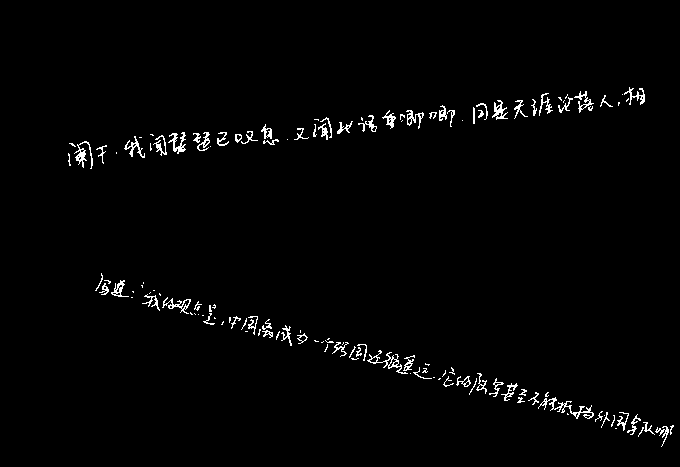 阑干。我闻琵琶已叹息，又闻此语重唧唧。同是天涯沦落人，相
写道：“我的观点是，中国离成为一个强国还很遥远，它的陆军甚至不能抵挡外国军队哪